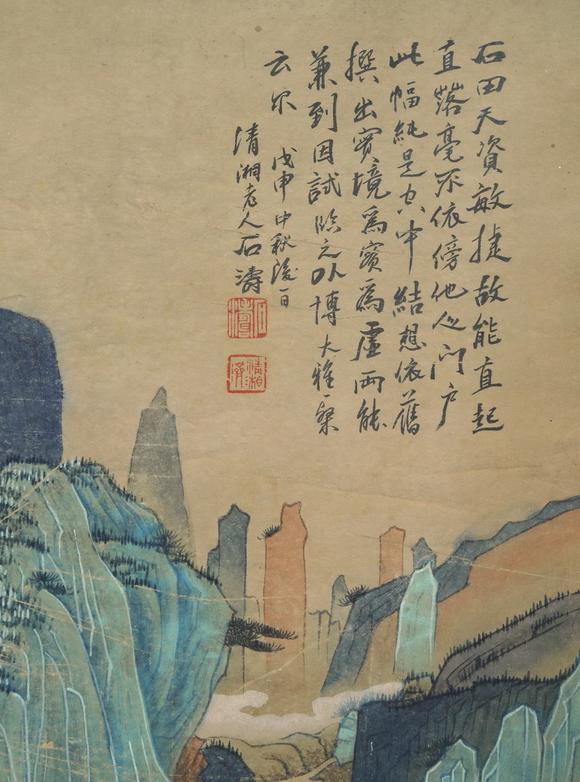 石田天資敏捷故能直起
直落毫不依傍他人門户
此幅純是空中結想依舊
撰出實境爲實爲虛兩能
兼到因試臨之以博大雅一粲
云尔 戊申中秋後一日
清湘老人石濤